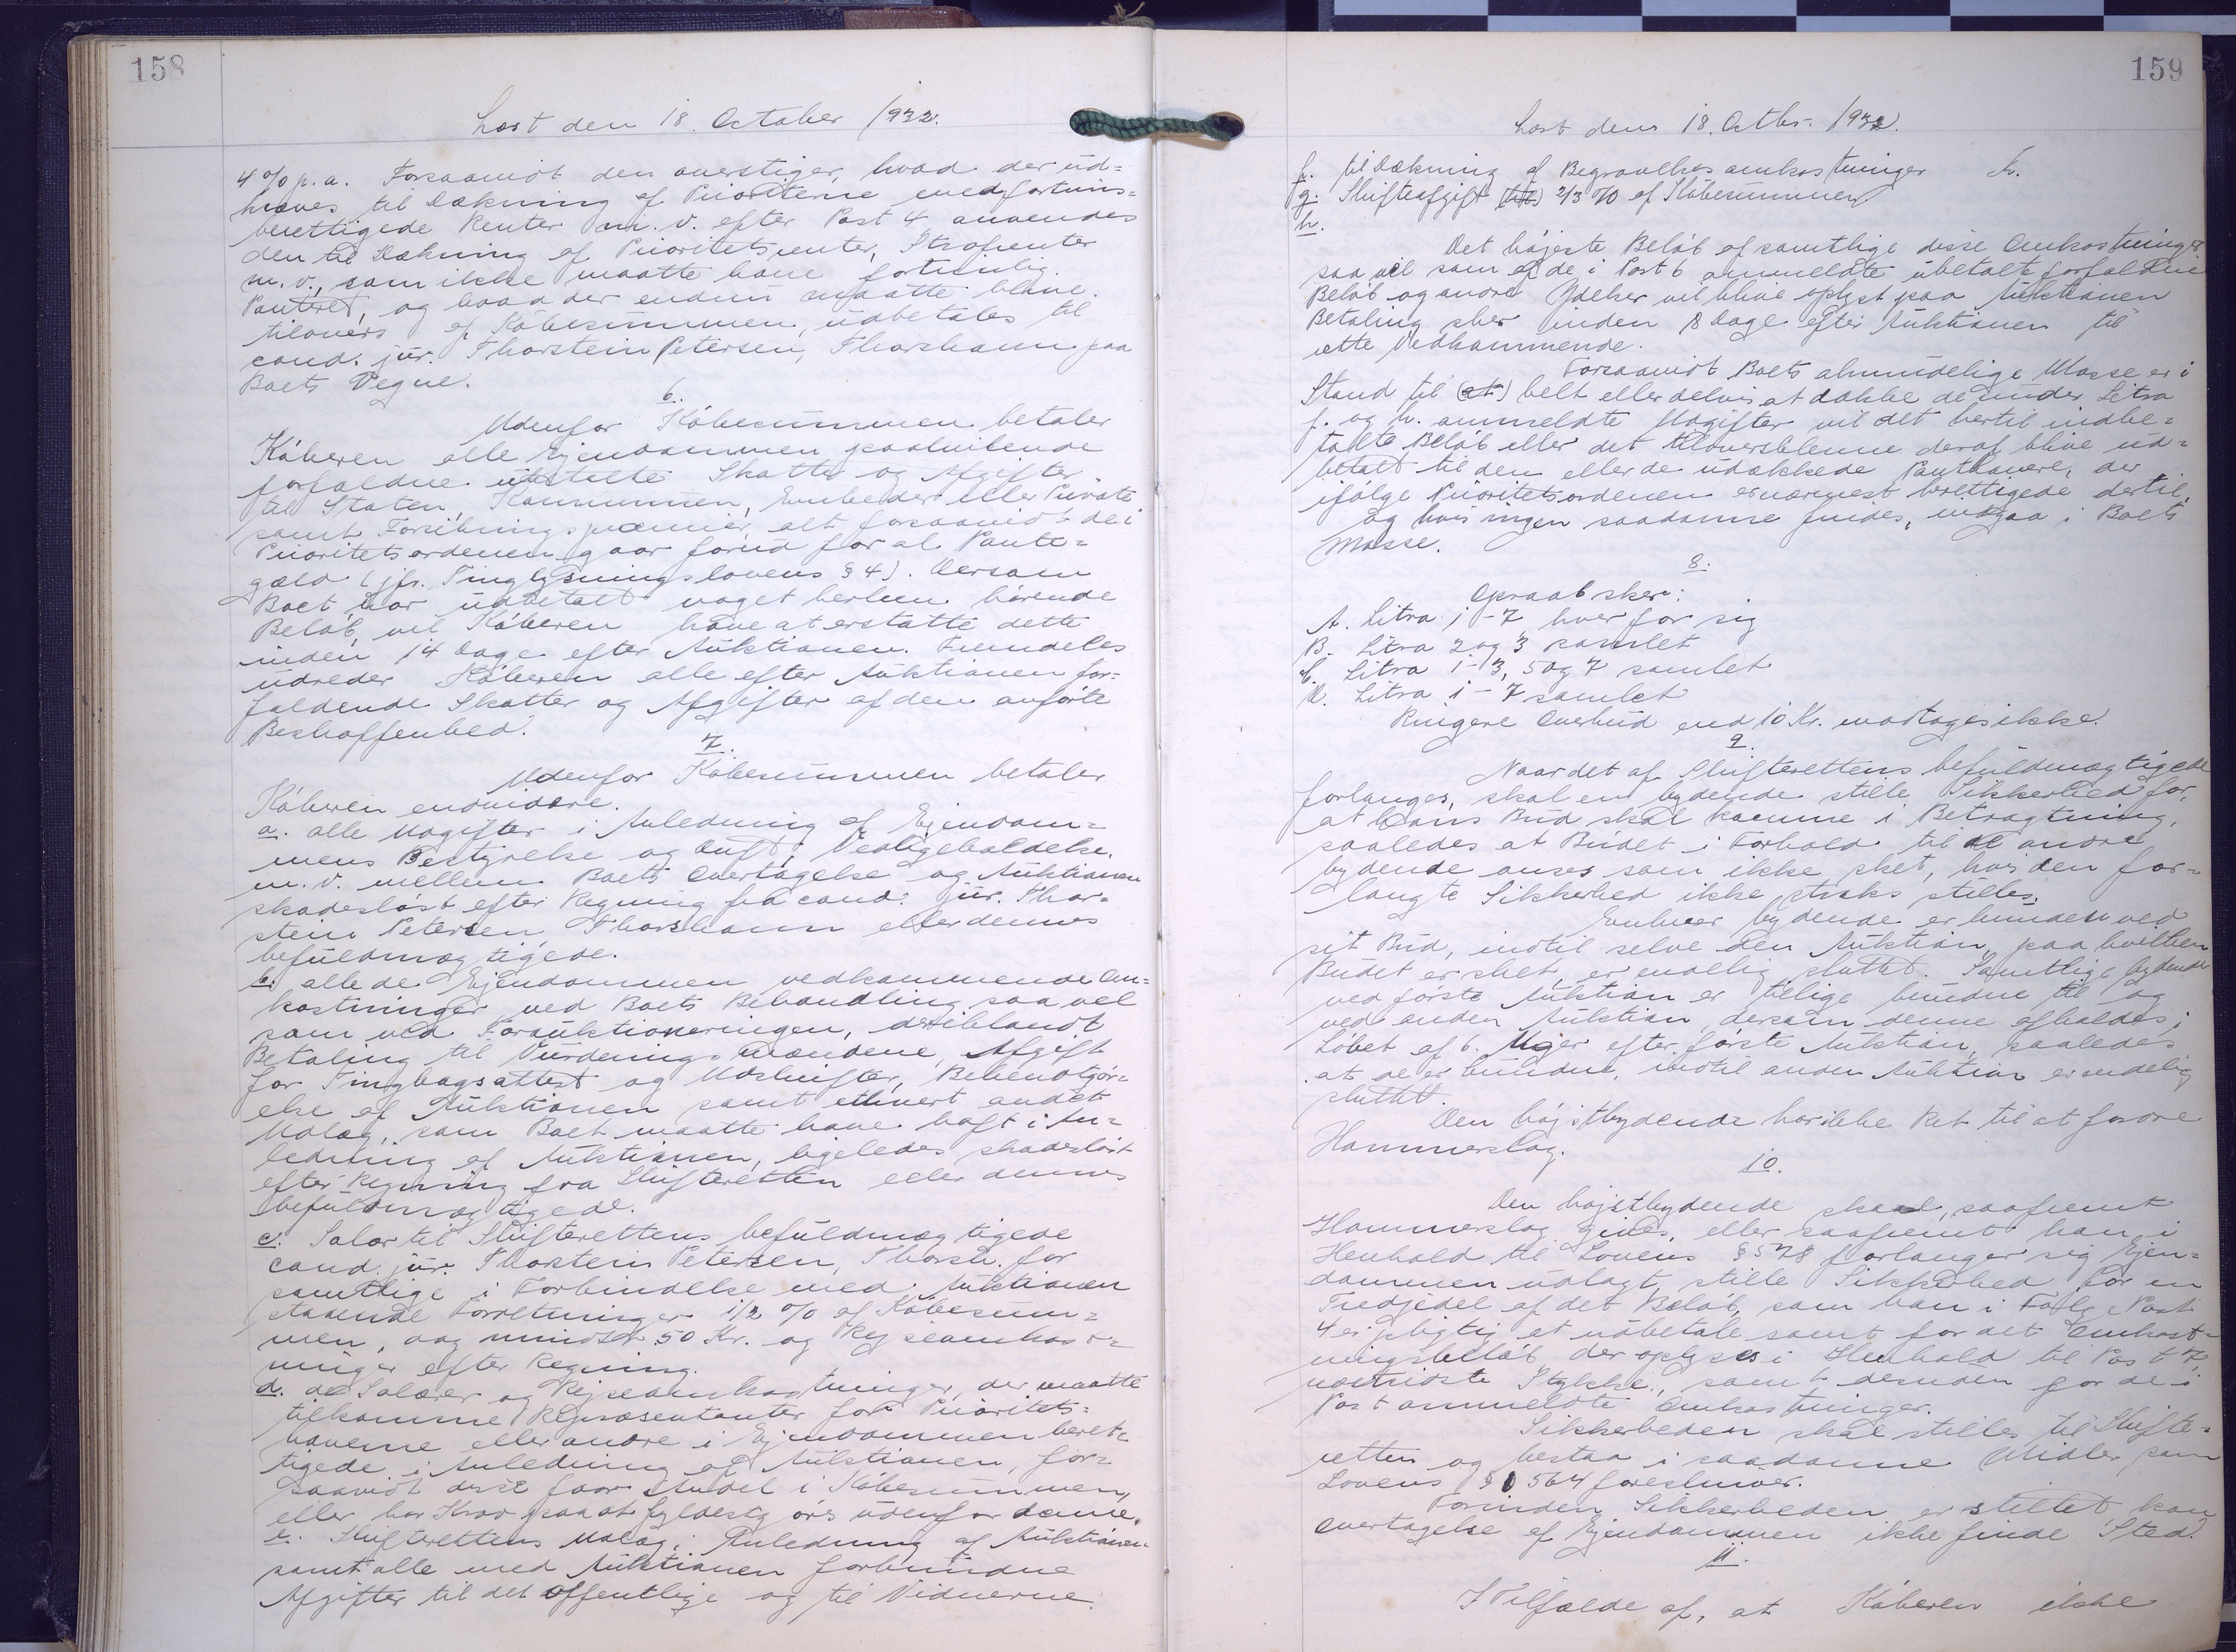 158
Læst den 18. October 1932.
4 % p.a. Forsaavidt den overstiger, hvad der ud=
kræves til Dækning af Prioriterne med fortrins=
berettigede Renter m.v. efter Post 4 anvendes
den til Dækning af Prioritetsrenter, Strafrenter
m.v., som ikke maatte have fortrinlig
Panteret, og hvad der endnu maatte blive
tilovers af Købesummen, udbetales til
cand. jur. Thorstein Petersen, Thorshavn paa
Boets Vegne.
6.
Udenfor Købesummen betaler
Køberen alle Ejendommen paahvilende
forfaldne ubetalte Skatter og Afgifter
til Staten, Kommunen, Embeder eller Private
samt Forsikringspræmier, alt forsaavidt de i
Prioritetsordenen gaar forud for al Pante=
gæld (jfr. Tinglysningslovens § 4). Dersom
Boet har udbetalt noget herhen hørende
Beløb, vil Køberen have at erstatte dette
inden 14 Dage efter Auktionen. Fremdeles
udreder Køberen alle efter Auktionen for=
faldende Skatter og Afgifter af den anførte
Beskaffenhed.
7.
Udenfor Købesummen betaler
Køberen endvidere.
a. alle Udgifter i Anledning af Ejendom=
mens Bestyrelse og Drift, Vedligeholdelse,
m.v. mellem Boets Overtagelse og Auktionen
skadesløst efter Regning fra cand: jur. Thor=
stein Petersen Thorshavn eller dennes
befuldmægtigede.
b. alle de Ejendommen vedkommende Om=
kostninger ved Boets Behandling saavel
som ved Forauktioneringen, deriblandt
Betaling til Vurderingsmændene, Afgift
for Tingbogsattest og Udskrifter, Bekendtgør=
else af Auktionen samt ethvert andet
Udlæg, som Boet maatte have haft i An=
ledning af Auktionen, ligeledes skadesløst
efter Regning fra Skifteretten eller dennes
befuldmægtigede.
c. Salær til Skifterettens befuldmægtigede
cand. jur. Thorstein Petersen, Thorsh. for
samtlige i Forbindelse med Auktionen
staaende Forretninger 1/2 % af Købesum=
men, dog mindst 50 Kr. og Rejseomkost=
ninger efter Regning.
d. de Salærer og Rejseomkostninger, der maatte
tilkomme Repræsentanter for Prioritets=
haverne eller andre i Ejendommen beret=
tigede i Anledning af Auktionen, for=
saavidt disse faar Andel i Købesummen,
eller har Krav paa at fyldestgøres udenfor denne.
e. Skifterettens Udlæg i Anledning af Auktionen
samt alle med Auktionen forbundne
Afgifter til det offentlige og til Vidnerne.
159
Læst den 18. Octbr. 1932.
f. til Dækning af Begravelsesomkostninger Kr.
g. Skifteafgift (til) 2/3 % af Købesummen
h.
Det højeste Beløb af samtlige disse Omkostninger
saavel som af de i Post 6 ommeldte ubetalte forfaldne
Beløb og andre Ydelser vil blive oplyst paa Auktionen
Betaling sker inden 8 Dage efter Auktionen til
rette Vedkommende.
Forsaavidt Boets almindelige Masse er i
Stand til (at) helt eller delvis at dække de under Litra
f. og h. ommeldte Udgifter vil det hertil indbe=
talte Beløb eller det tiloversblevne deraf blive ud=
betalt til den eller de udækkede Panthavere, der
ifølge Prioritetsordenen er nærmest berettigede dertil,
og hvis ingen saadanne findes, indgaa i Boets
Masse.
8.
Opraab sker:
A. Litra 1-7 hver for sig
B. Litra 2 og 3 samlet
C. Litra 1-3, 5 og 7 samlet
D. Litra 1-7 samlet
Ringere Overbud end 10 Kr. modtages ikke.
9.
Naar det af Skifterettens befuldmægtigede
forlanges, skal en bydende stille Sikkerhed for,
at hans Bud skal komme i Betragtning,
saaledes at Budet i Forhold til de andre
bydende anses som ikke sket, hvis den for=
langte Sikkerhed ikke straks stilles.
Enhver bydende er bunden ved
sit Bud, indtil selve den Auktion, paa hvilken
Budet er sket, er endelig sluttet. Samtlige bydende
ved første Auktion er tillige bundne til og
ved anden Auktion dersom denne afholdes i
Løbet af 6. Uger efter første Auktion, saaledes
at de er bundne, indtil anden Auktion er endelig
sluttet.
Den højstbydende har ikke Ret til at fordre
Hammerslag.
10.
Den højstbydende skal, saafremt
Hammerslag gives, eller saafremt han i
Henhold til Lovens § 578 forlanger sig Ejen=
dommen udlagt, stille Sikkerhed for en
Tredjedel af det Beløb, som han i Følge Post
4 er pligtig at udbetale samt for det Omkost=
ningsbeløb der oplyses i Henhold til Post 7,
næstsidste Stykke, samt desuden for de i
Post ommeldte Omkostninger.
Sikkerheden skal stilles til Skifte=
retten og bestaa i saadanne Midler som
Lovens § 564 foreskriver.
Forinden Sikkerheden er stillet kan
Overtagelse af Ejendommen ikke finde Sted.
11.
I Tilfælde af, at Køberen ikke